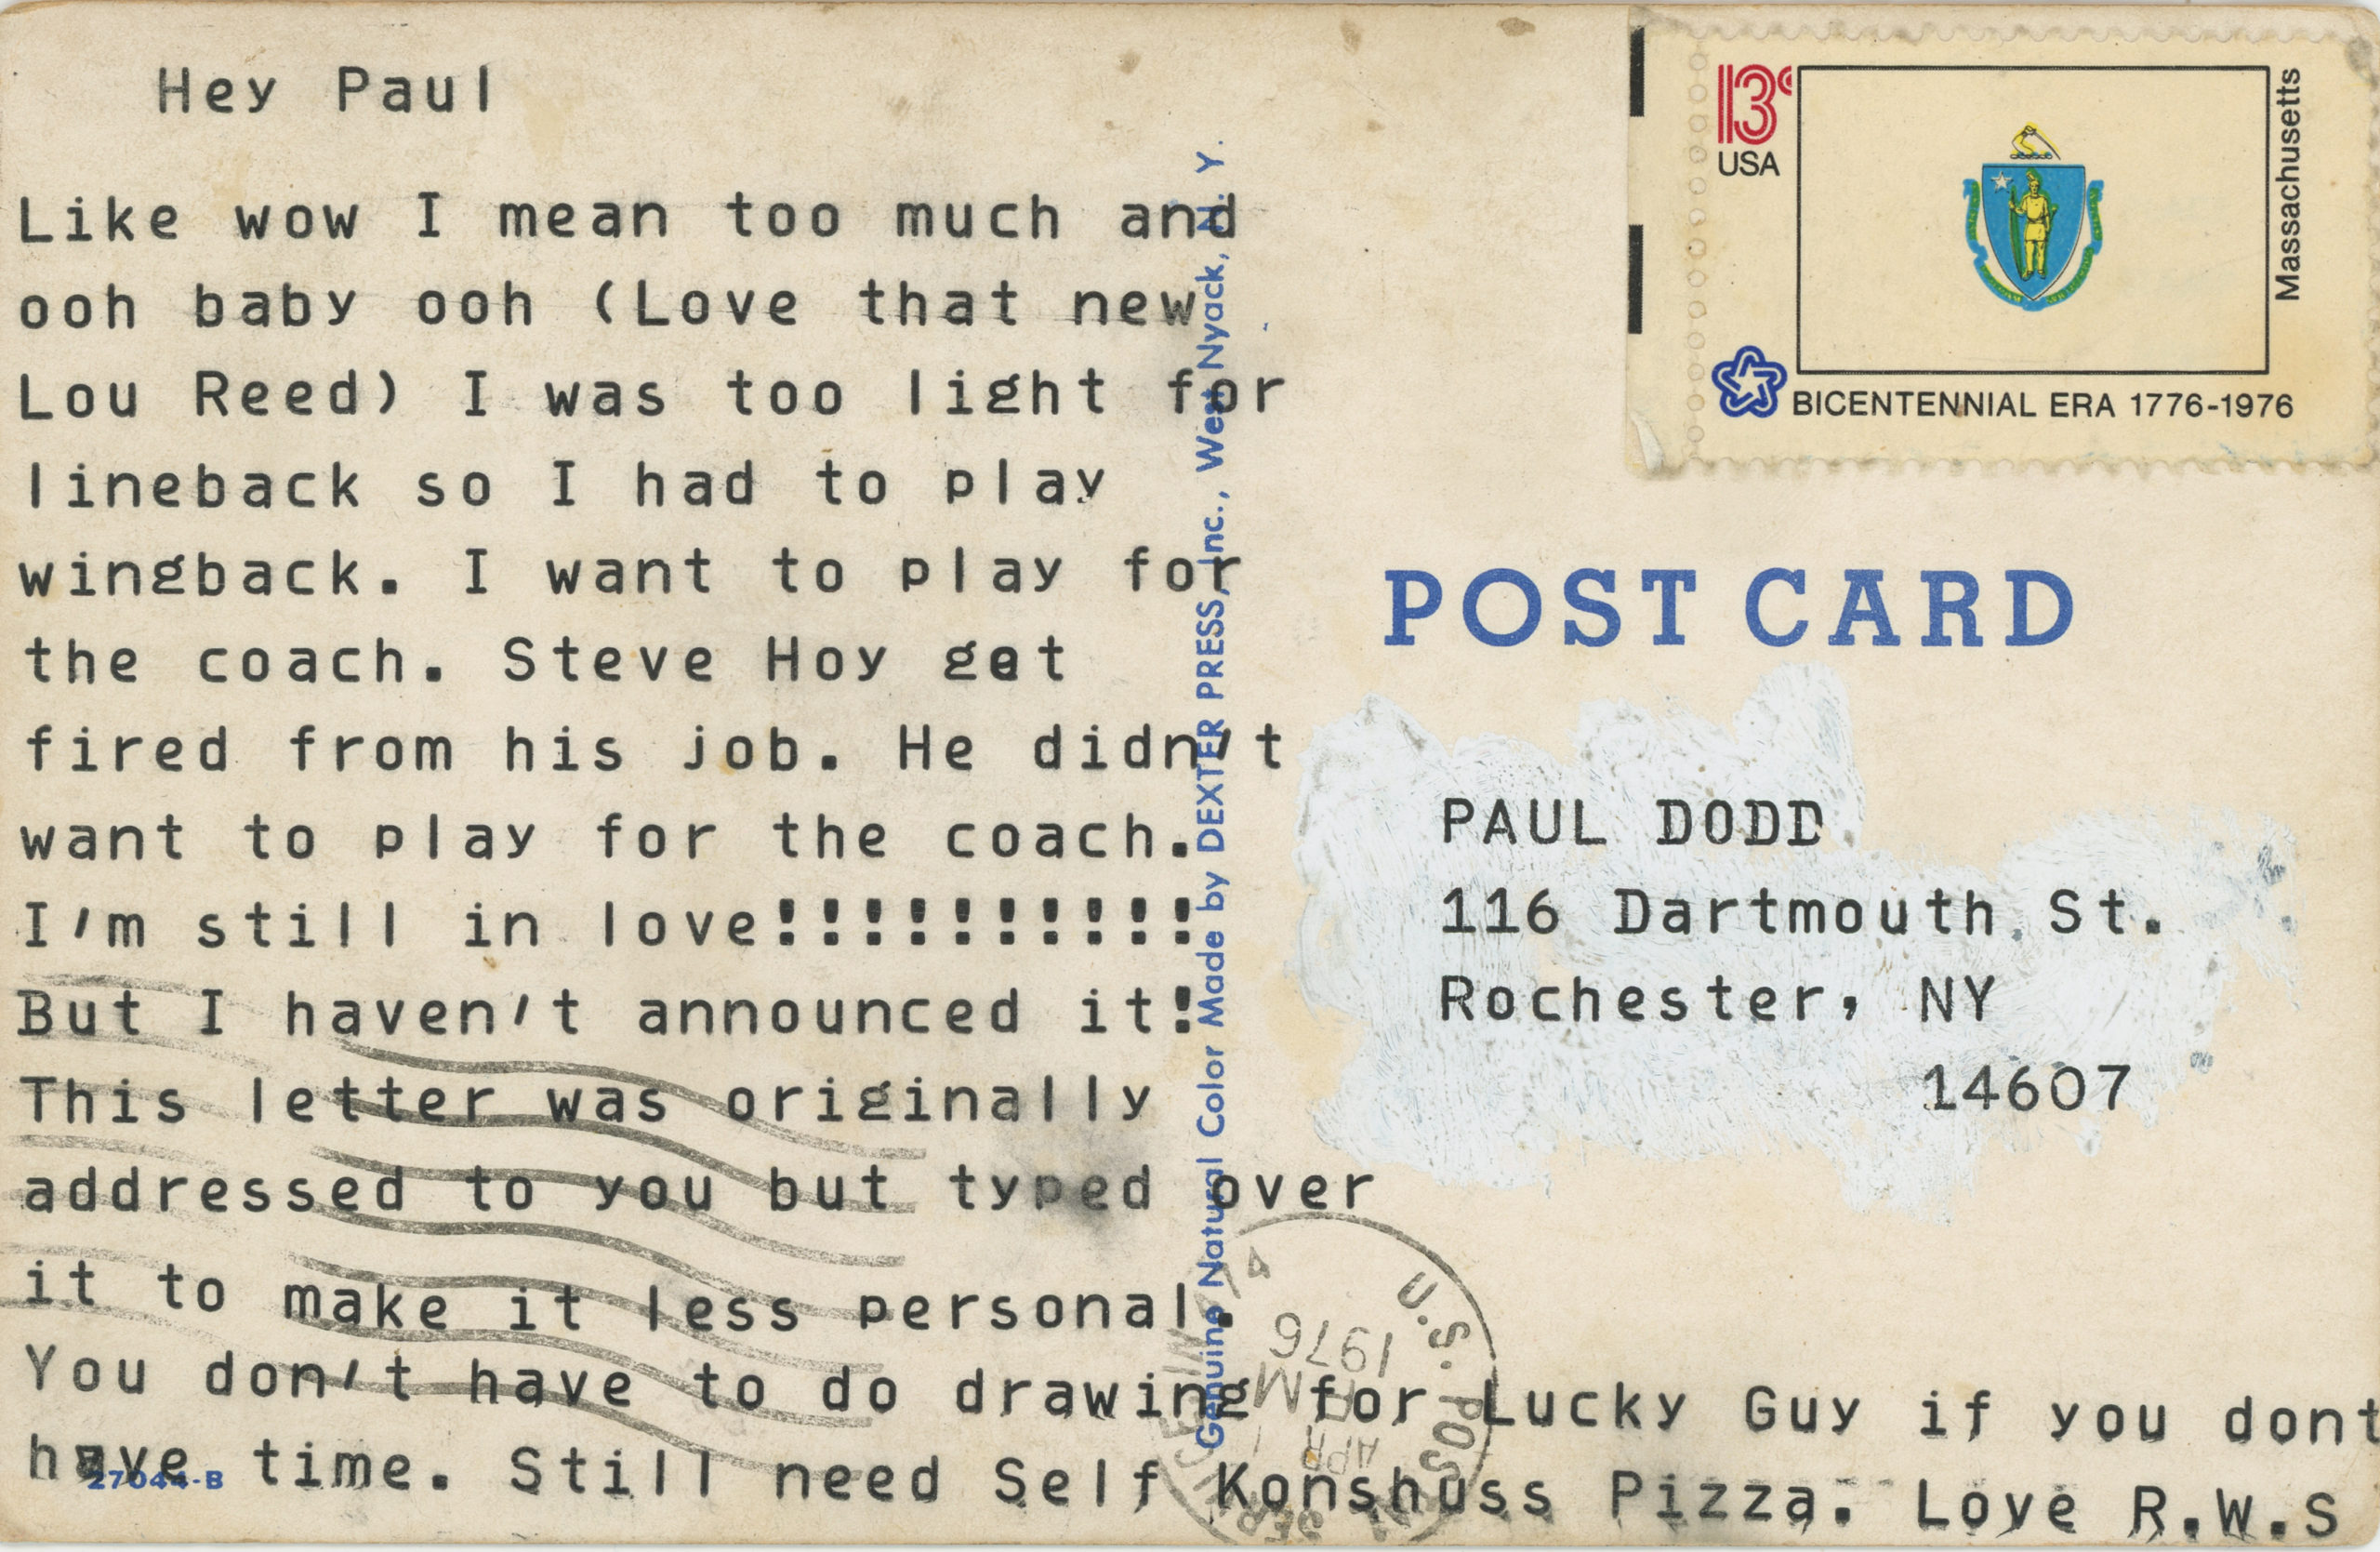 Hey Paul
Like wow I mean too much and
ooh baby ooh (Love that new
Lou Reed) I was too light for
lineback so I had to play
wingback. I want to play for
the coach. Steve Hoy get
fired from his job. He didn't
want to play for the coach.
I'm still in love!!!!!!!!!!
But I haven't announced it!
This letter was originally
addressed to you but typed over
it to make it less personal.
You don't have to do drawing for Lucky Guy if you dont
have time. Still need Self Konshuss Pizza. Love R.W.S
27044-B
Genuine Natural Color Made by DEXTER PRESS, Inc., West Nyack, N. Y.
13c
USA
Massachusetts
BICENTENNIAL ERA 1776-1976
POST CARD
PAUL DODD
116 Dartmouth St.
Rochester, NY
14607
U.S. POS
PM
APR
1976